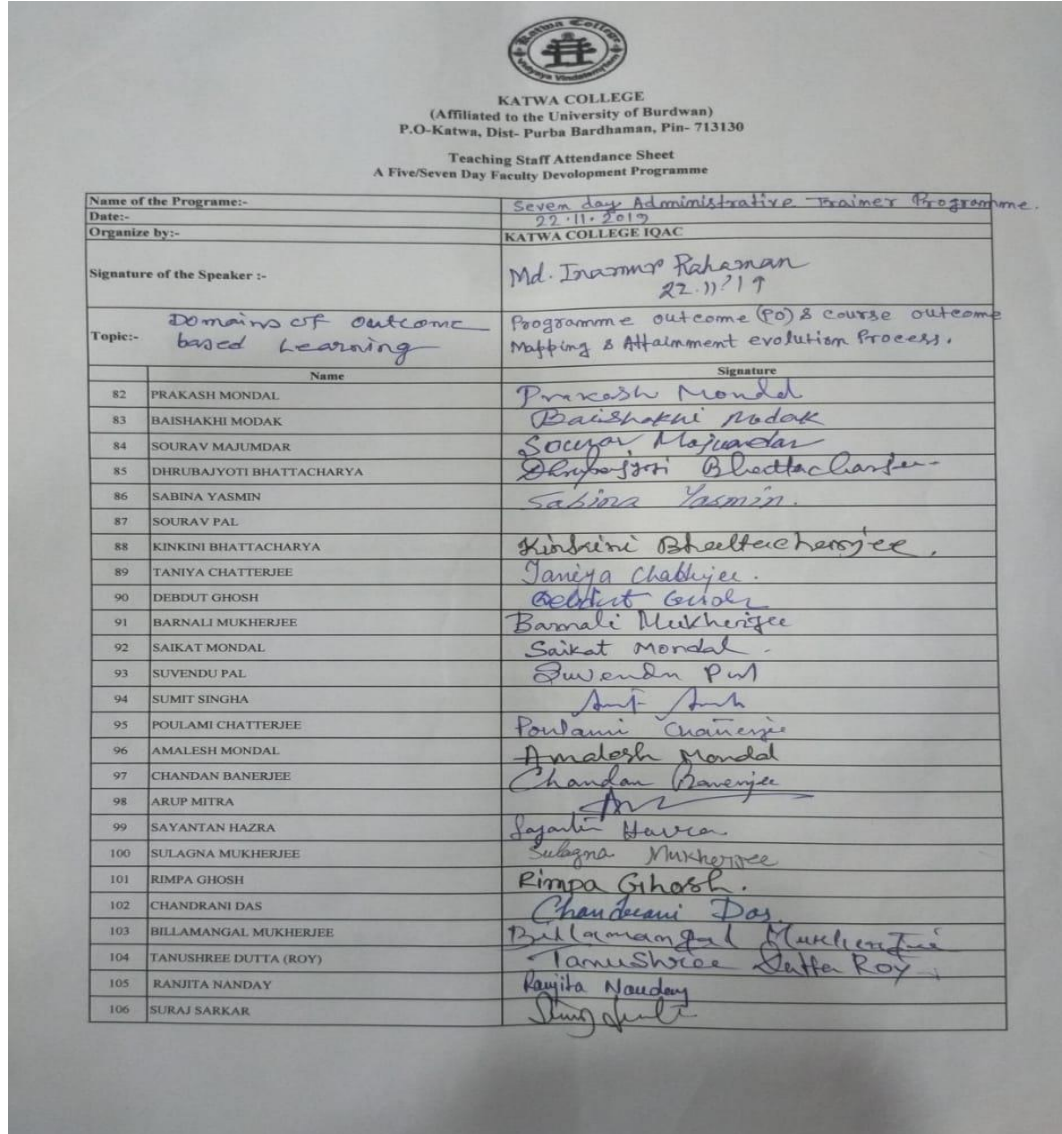 Katwa College
Vidyaya Vindatemrytam
KATWA COLLEGE
(Affiliated to the University of Burdwan)
P.O-Katwa, Dist- Purba Bardhaman, Pin- 713130
Teaching Staff Attendance Sheet
A Five/Seven Day Faculty Devolopment Programme
Name of the Programe:- Seven day Administrative Trainer Programme.
Date:- 22.11.2019
Organize by:- KATWA COLLEGE IQAC
Signature of the Speaker :- Md. Inamur Rahaman
22.11.19
Topic:- Domains of outcome based Learning Programme outcome (PO) & course outcome
Mapping & Attainment evolution Process.
Name Signature
82 PRAKASH MONDAL Prakash Mondal
83 BAISHAKHI MODAK Baishakhi Modak
84 SOURAV MAJUMDAR Sourav Majumdar
85 DHRUBAJYOTI BHATTACHARYA Dhrubajyoti Bhattacharjee
86 SABINA YASMIN Sabina Yasmin.
87 SOURAV PAL
88 KINKINI BHATTACHARYA Kinkini Bhattacherjee.
89 TANIYA CHATTERJEE Taniya Chatterjee.
90 DEBDUT GHOSH Debdut Ghosh
91 BARNALI MUKHERJEE Barnali Mukherjee
92 SAIKAT MONDAL Saikat Mondal.
93 SUVENDU PAL Suvendu Pal
94 SUMIT SINGHA
95 POULAMI CHATTERJEE Poulami Chatterjee
96 AMALESH MONDAL Amalesh Mondal
97 CHANDAN BANERJEE Chandan Banerjee
98 ARUP MITRA
99 SAYANTAN HAZRA Sayantan Hazra
100 SULAGNA MUKHERJEE Sulagna Mukherjee
101 RIMPA GHOSH Rimpa Ghosh.
102 CHANDRANI DAS Chandrani Das.
103 BILLAMANGAL MUKHERJEE Billamangal Mukherjee
104 TANUSHREE DUTTA (ROY) Tanushree Dutta Roy
105 RANJITA NANDAY Ranjita Nanday
106 SURAJ SARKAR